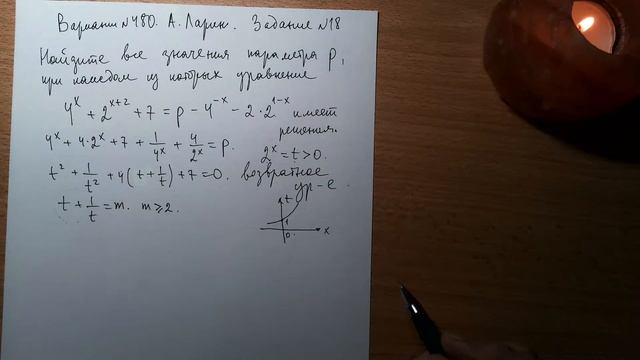 Вариант №480. А. Ларин. Задание №18
Найдите все значения параметра p,
при каждом из которых уравнение
4^x + 2^{x+2} + 7 = p - 4^{-x} - 2·2^{1-x} имеет
решения.
4^x + 4·2^x + 7 + 1/4^x + 4/2^x = p. 2^x = t > 0.
t^2 + 1/t^2 + 4(t + 1/t) + 7 = 0. возвратное
ур-е.
t + 1/t = m. m ⩾ 2.
t
1
0
x